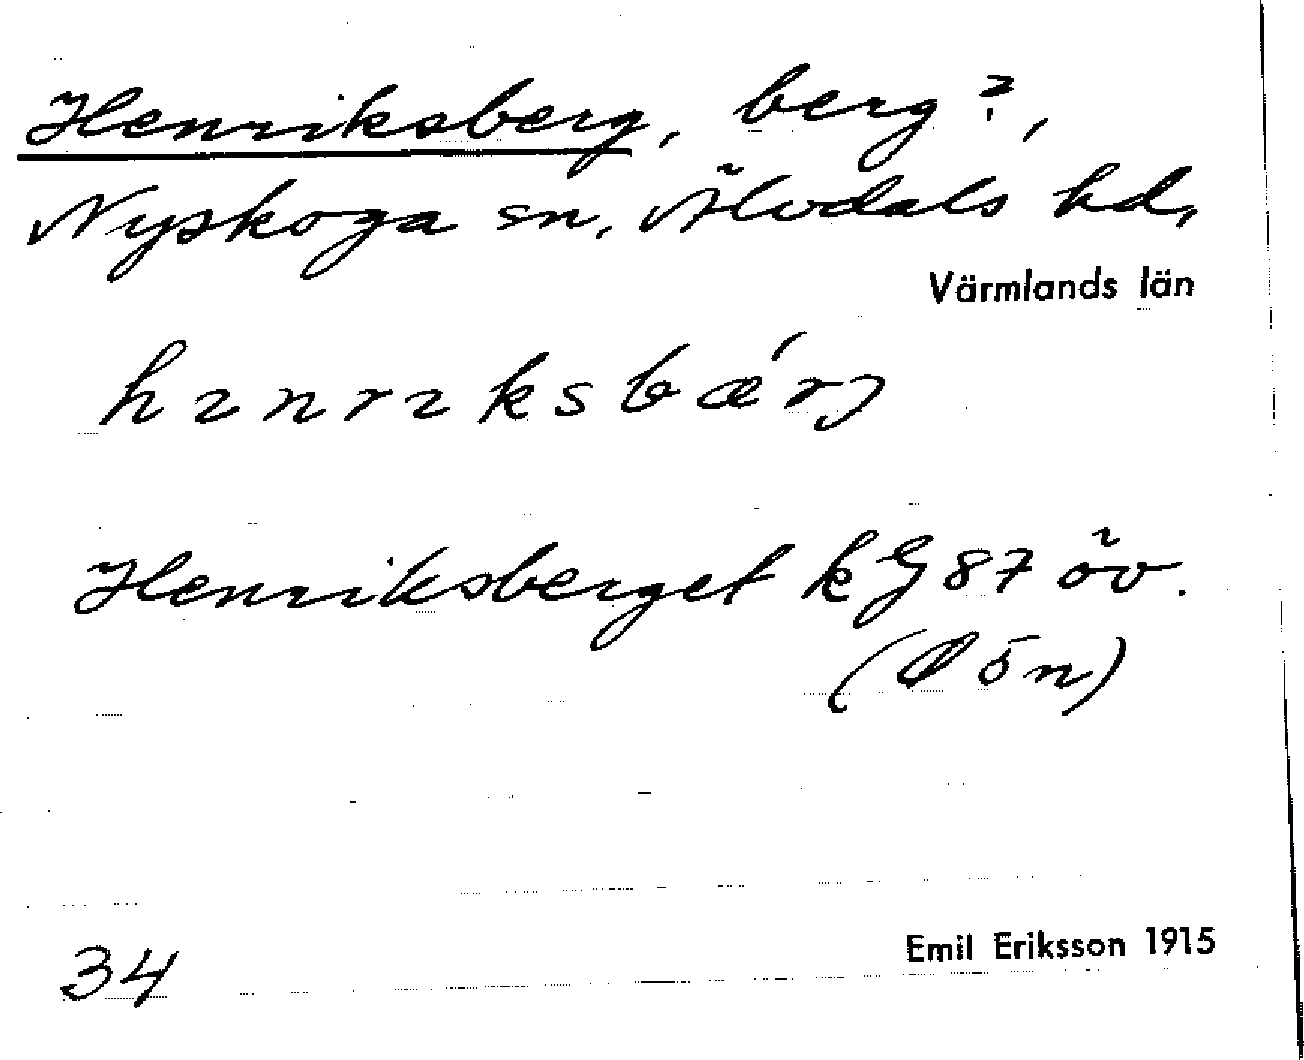 Henriksberg, berg?,
Nyskoga sn, Älvdals hd,
Värmlands län
hɛnrɪksbǽrj
Henriksberget k G 87 öv.
( ön)
34
Emil Eriksson 1915